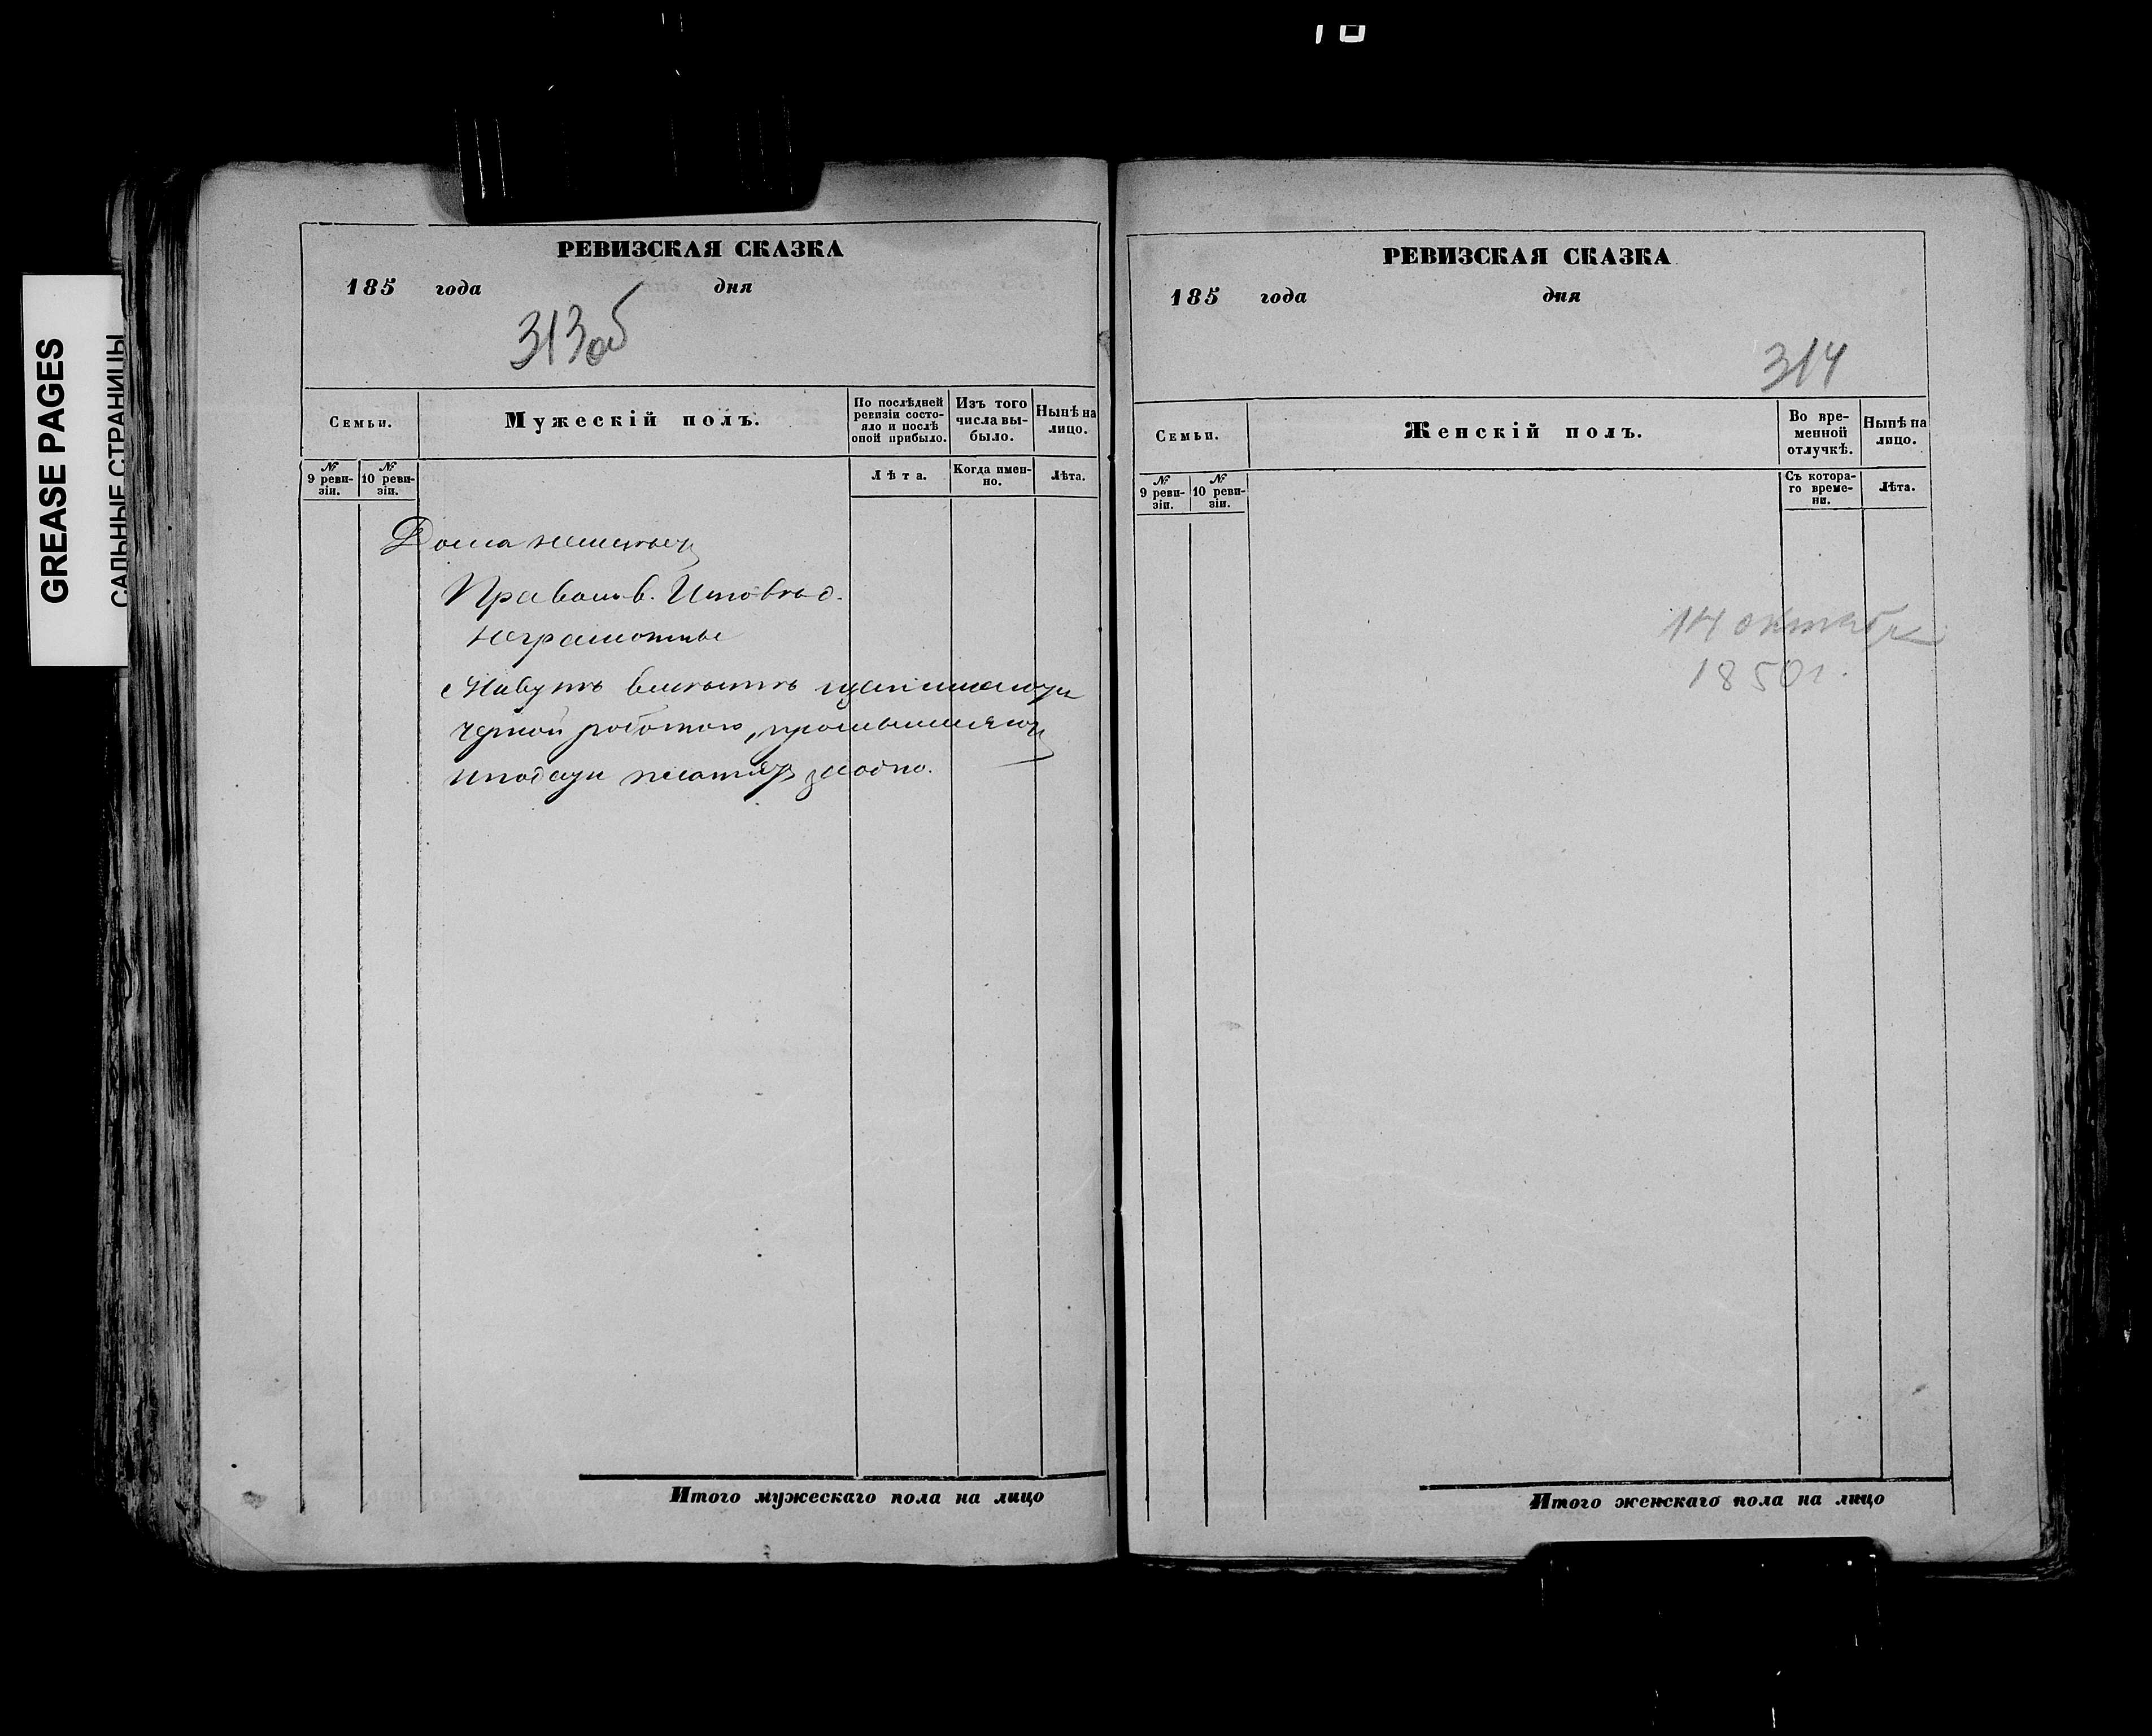 GREASE PAGES
САЛЬНЫЕ СТРАНИЦЫ
РЕВИЗСКАЯ СКАЗКА
185 года дня
313об
Семьи.
Мужескій полъ.
По послѣдней ревизіи состояло и послѣ оной прибыло.
Изъ того числа выбыло.
Нынѣ на лицо.
№ 9 ревизіи.
№ 10 ревизіи.
Лѣта.
Когда именно.
Лѣта.
Дома неимѣютъ
Правосл. в. Исповѣд.
неграмотные
Живутъ вмѣстѣ
черной работою, промышляютъ
иподати платятъ заодно.
Итого мужескаго пола на лицо
РЕВИЗСКАЯ СКАЗКА
185 года дня
314
Семьи.
Женскій полъ.
Во временной отлучкѣ.
Нынѣ на лицо.
№ 9 ревизіи.
№ 10 ревизіи.
Съ котораго времени.
Лѣта.
14 октября
1850г.
Итого женскаго пола на лицо